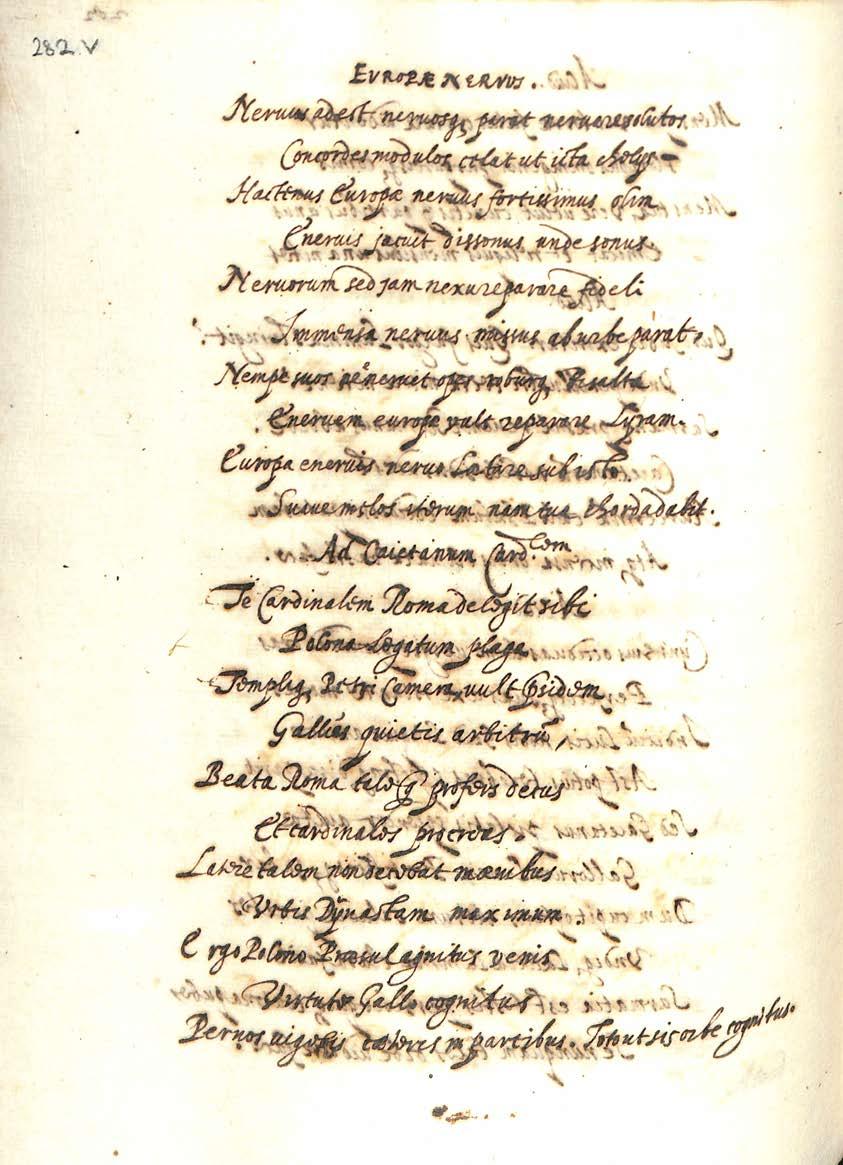 282 V
EVROPÆ NERVUS.
Neruus adest neruosq, parat neruare solutos
Concordes modulos ut iuta chelys
Hactenus Europæ neruus fortissimus olim
Eneruis jacuit dissonus unde sonus
Neruorum sed jam nexu reparare fideli
Immensa neruus missus ab urbe parat,
Nempe suos opes roburq,
Eneruem europæ vult reparare Lyram.
Europa eneruis neruo Lætare sub isto.
Suaue melos iterum nam tua chorda dabit.
Ad Caietanum Card.lem
Te Cardinalem Roma delegit sibi
Polona Legatum plaga
Templiq, Petri Camera vult Psidem
Gallúes quietis arbitrū,
Beata Roma tale q profers decus
Et cardinales procreas.
Latere talem non decebat mænibus
Vrbis Dynastam maximum.
Ergo Polono Præsul agnitus venis
Virtute Gallo cognitus
Per nos cæteris in partibus. Toto ut sis orbe cognitus.